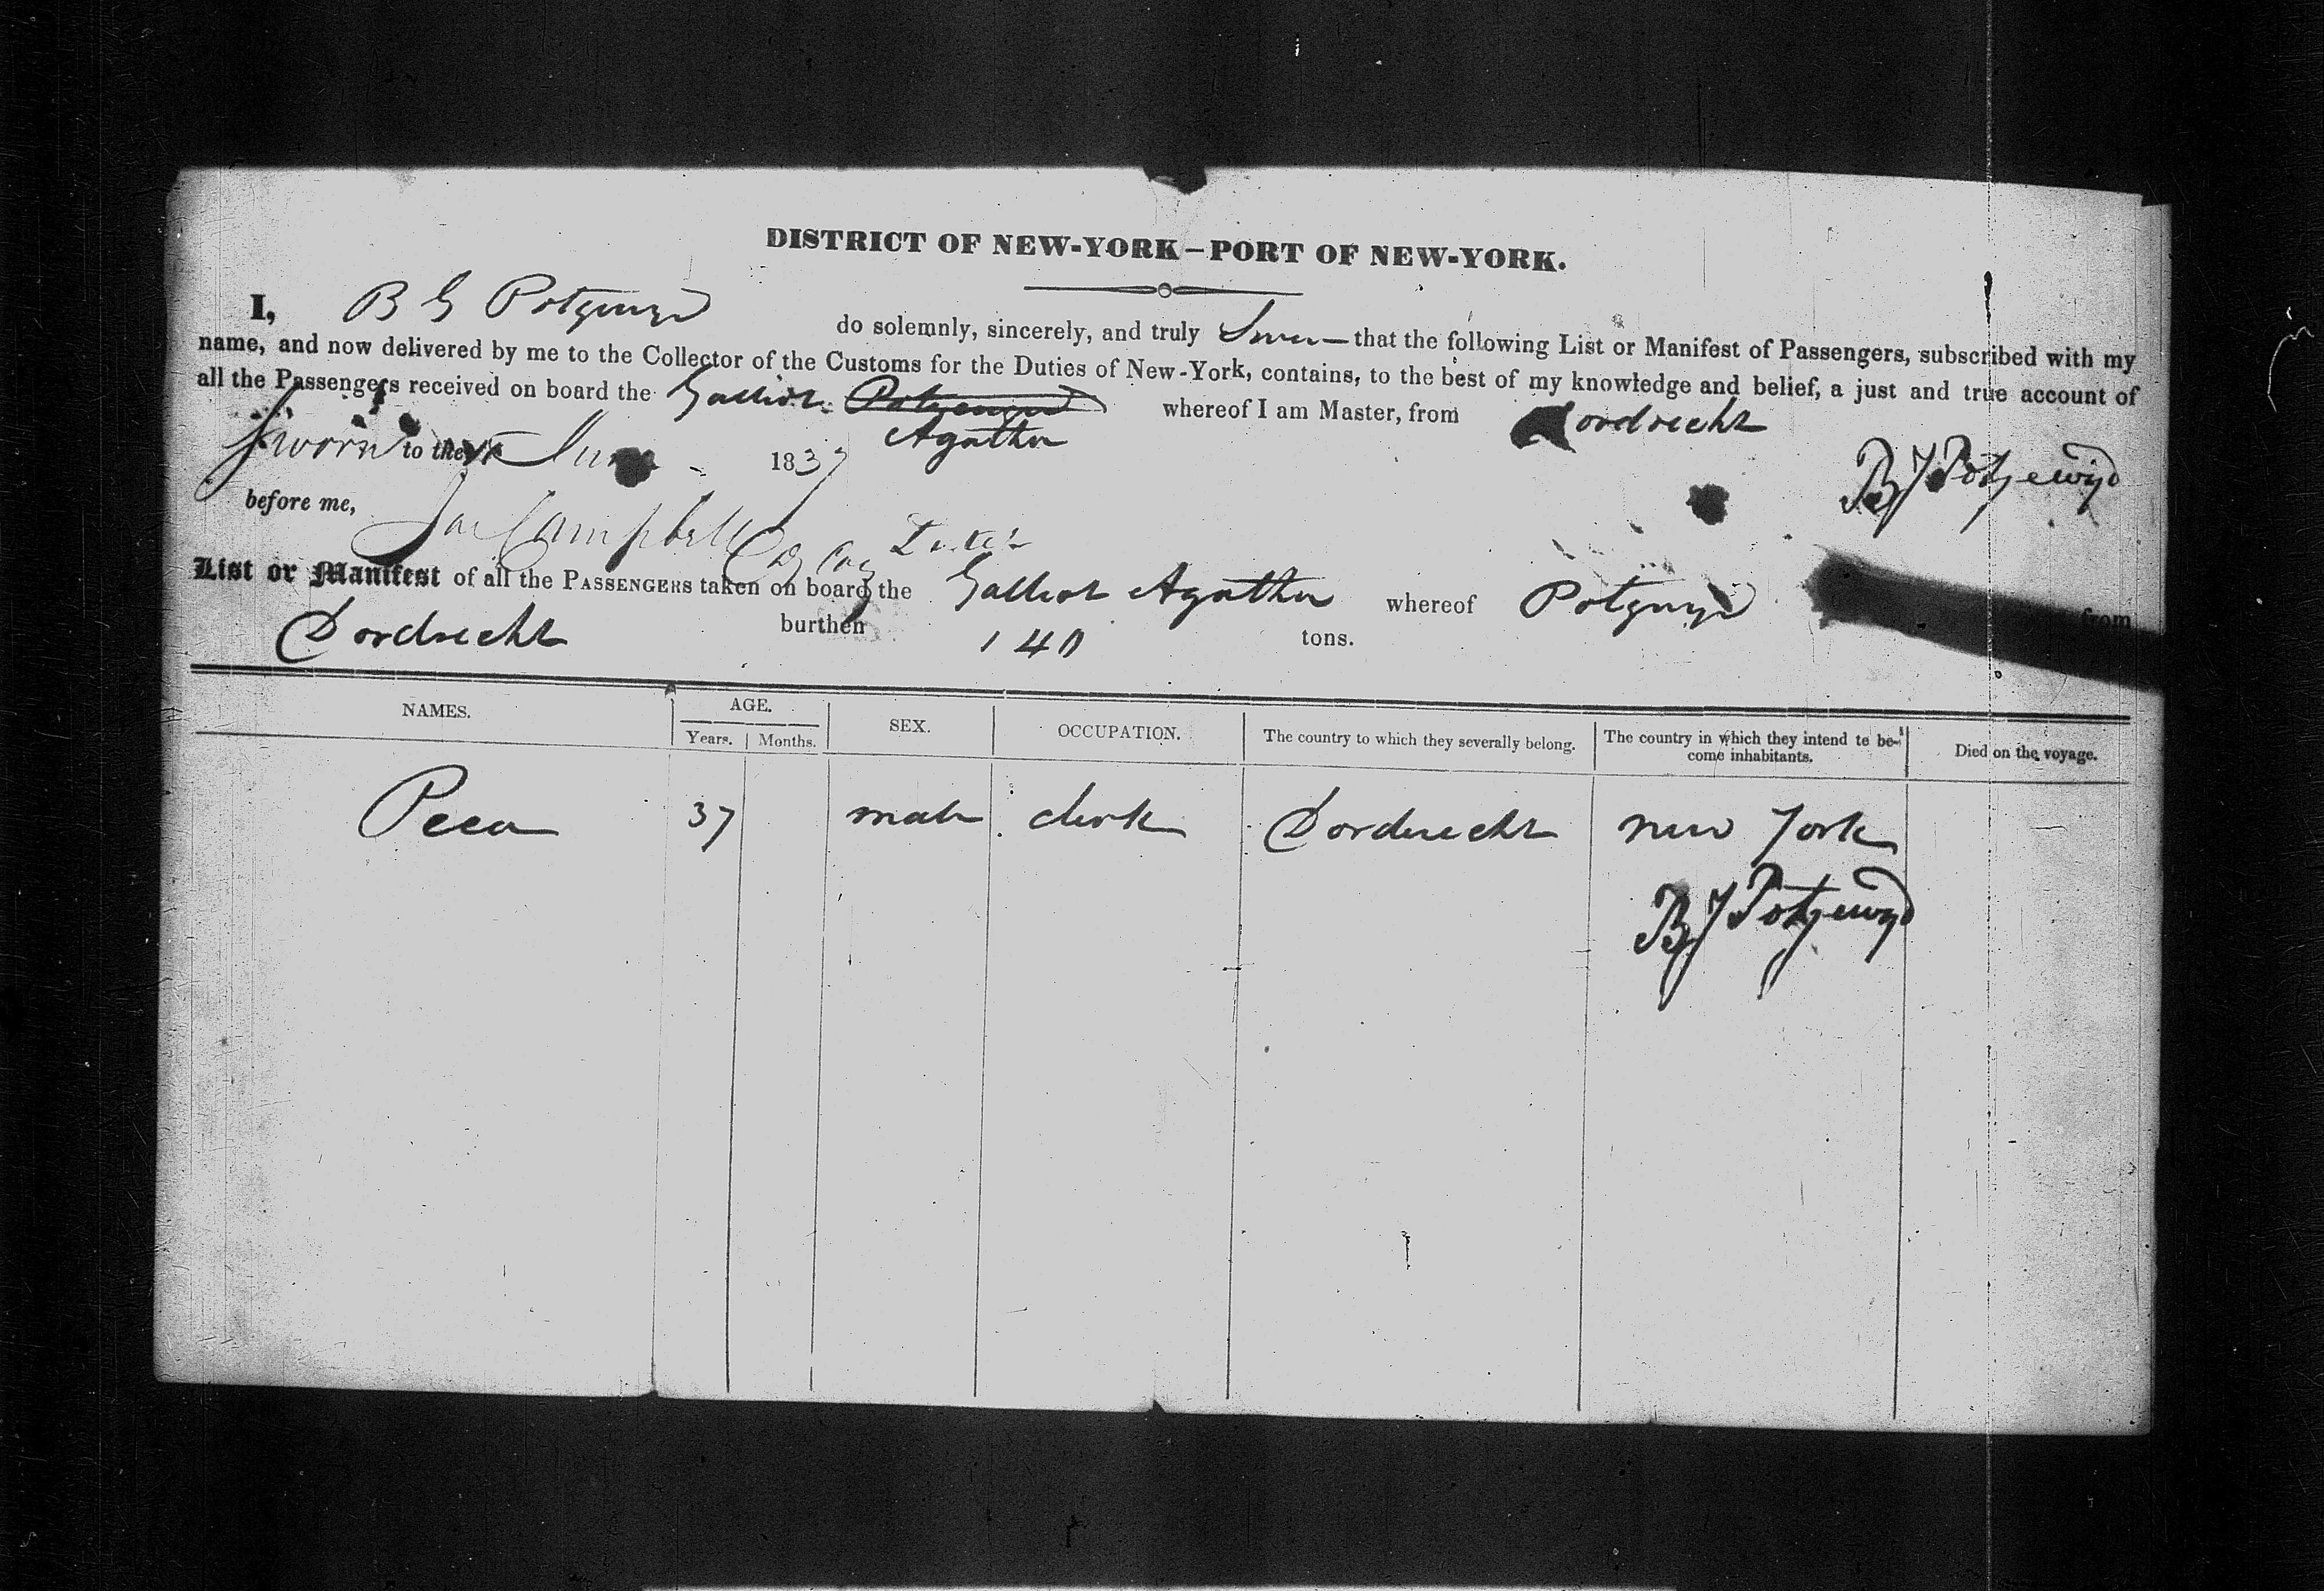 DISTRICT OF NEW-YORK–PORT OF NEW-YORK.
I, B G Potgewyd do solemnly, sincerely, and truly Swear that the following List or Manifest of Passengers, subscribed with my
name, and now delivered by me to the Collector of the Customs for the Duties of New-York, contains, to the best of my knowledge and belief, a just and true account of
all the Passengers received on board the Galliot Agatha whereof I am Master, from Dordrecht
Sworn to the June 1837
B J Potjewijd
before me, Campbell
List or Manifest of all the PASSENGERS taken on board the Galliot Agatha whereof from
Dordrecht burthen 140 tons.
NAMES. AGE. Years. Months. SEX. OCCUPATION. The country to which they severally belong. The country in which they intend to be-come inhabitants. Died on the voyage.
37 male clerk Dordrecht new York
B J Potjewijd